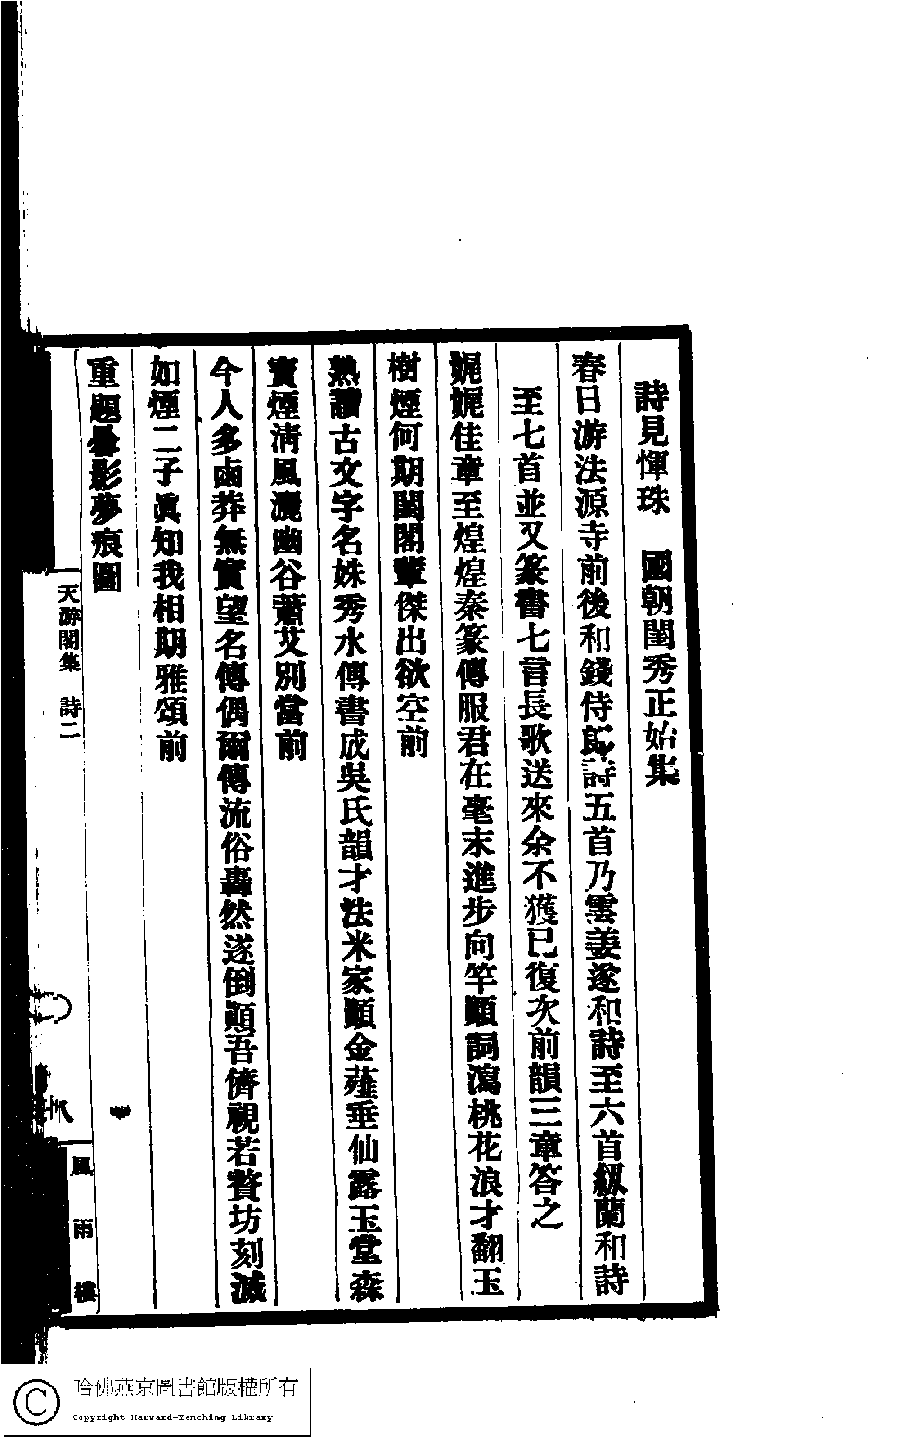 詩見惲珠　國朝閨秀正始集
春日游法源寺前後和錢侍郎詩五首乃雲姜遂和詩至六首紉蘭和詩
至七首並又篆書七言長歌送來余不獲已復次前韻三章答之
娓娓佳章至煌煌秦篆傳服君在毫末進步向竿顚詞瀉桃花浪才翻玉
樹煙何期閨閣輩傑出欲空前
熟讀古文字名姝秀水傳書成吳氏韻才法米家顚金薤垂仙露玉堂森
寶煙淸風灑幽谷蕭艾別當前
今人多鹵莽無實望名傳偶爾傳流俗轟然遂倒顚吾儕視若贅坊刻滅
如煙二子眞知我相期雅頌前
重題曇影夢痕圖
天游閣集　詩二
風雨樓
哈佛燕京圖書館版權所有
Copyright Harvard-Yenching Library